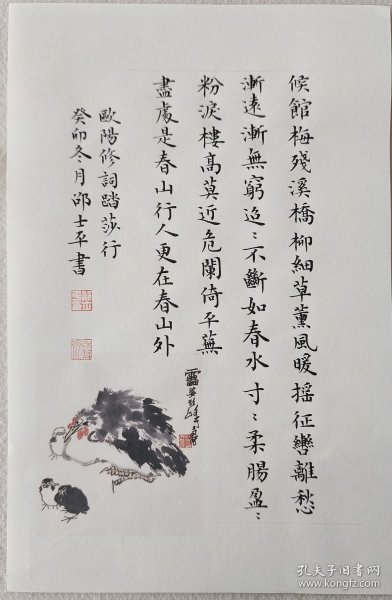 候館梅殘溪橋柳細草薰風暖搖征轡離愁
漸遠漸無窮迢〻不斷如春水寸〻柔腸盈〻
粉淚樓高莫近危闌倚平蕪
盡處是春山行人更在春山外
歐陽修詞踏莎行
癸卯冬月邵士平書
孔夫子旧书网
www.kongfz.com